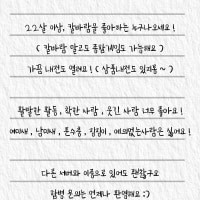 22살 이상, 칼바람을 좋아하는 누구나오세요!
( 칼바람 말고도 종합게임도 가능해요 )
가끔 내전도 열려요! ( 상품내전도 있지롱 ~ )
활발한 활동, 착한 사람, 웃긴 사람 너무 좋아요!
여미새, 남미새, 혼수충, 징징이, 예의없는사람은 싫어요!
다른 서버와 이중으로 있어도 괜찮구요
합병 문의는 언제나 환영해요 :)